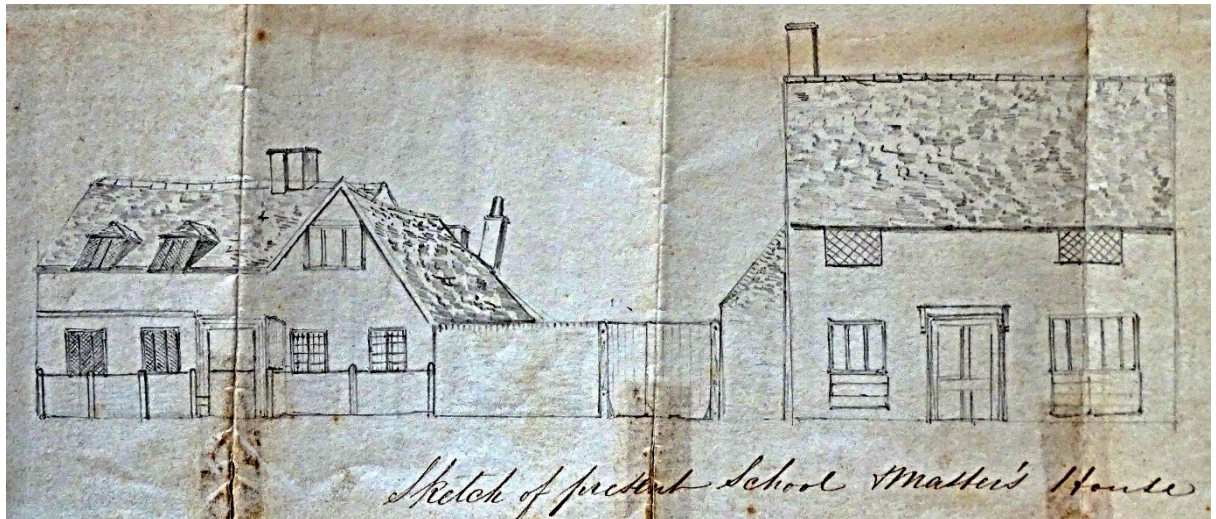 Sketch of present School & Master's House